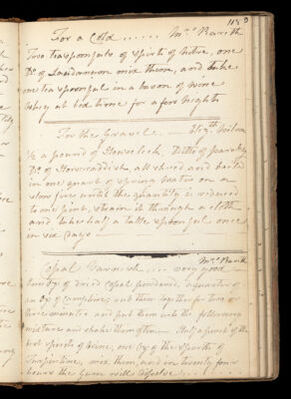 For a Cold ...... Mrs Barith
Two teaspoonfuls of spirits of Nitre, one
Do of Laudanum mix them, and take
one teaspoonful in a bason of Wine
Whey at bed time for a few Nights
For the Gravele. Elizth Wilson
½ a pound of Do of parsley
Do of Horseraddish, all sliced and boiled
in one quart of spring water on a
slow fire until the quantity is reduced
to one pint, strain it through a cloth
and take half a table spoonful once
in six days
Mrs Barith
Copal Varnish .... very good
of dried Copal powdered, a quarter of
an oz of Camphire, rub them together for two or
three minutes and put them into the following
mixture and shake them often. Half a pint of the
best spirits of Wine, one oz of the spirits of
Turpentine, mix them, and in twenty four
hours the Gum will disolve